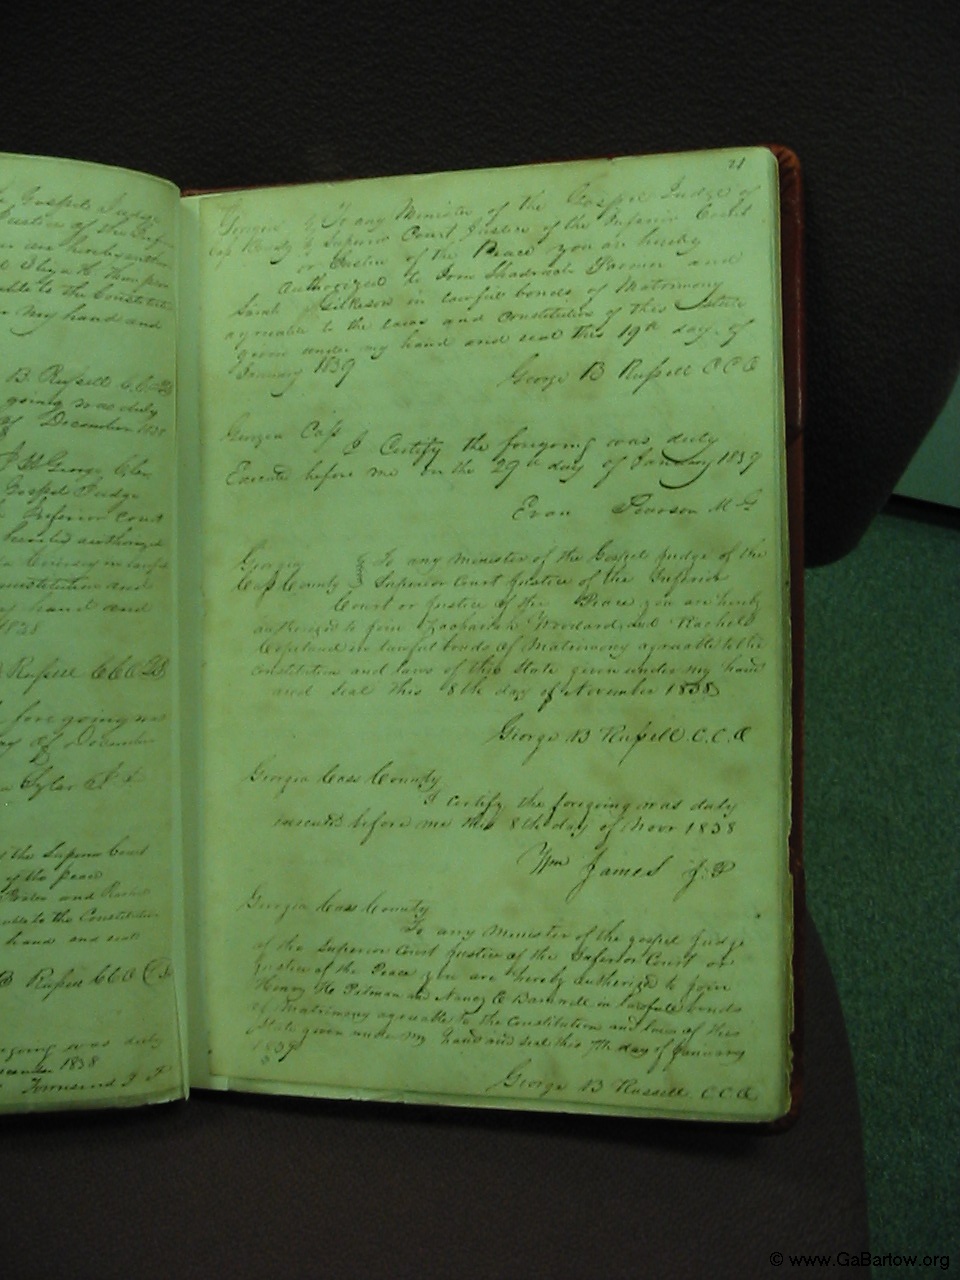 Gospel Judge
Justice of the Infer
are hereby author
Elizabeth Thompson
to the Constitut
my hand and
B. Russell C C O
going was duly
of December 1838
George
Gospel Judge
Inferior Court
hereby authorize
in lawf
constitution and
hand and
1838
Russell C C O
foregoing was
of December
Tyler
the Superior Court
of the peace
Porter and Rachel
to the Constitution
hand and seal
B Russell C C O
going was duly
December 1838
Townsend J P
21
Georgia To any Minister of the Gospel Judge of
Cass County Superior Court Justice of the Inferior Court
or Justice of the Peace you are hereby
authorized to Join Shadrach Farmer and
Sarah Gilkeson in lawful bonds of Matrimony
agreeable to the laws and constitution of this state
given under my hand and seal this 19th day of
January 1839
George B Russell C C O
Georgia Cass C I Certify the foregoing was duly
Executed before me on the 29th day of January 1839
Evan Pearson M G
Georgia To any minister of the Gospel Judge of the
Cass County Superior Court Justice of the Inferior
Court or Justice of the Peace you are hereby
authorized to join Zachariah Woodard and Rachel
Copeland in lawful bonds of Matrimony agreeable to the
Constitution and laws of this State given under my hand
and seal this 8th day of November 1838
George B Russell C.C.O
Georgia Cass County
I certify the foregoing was duly
executed before me this 8th day of Novr 1838
Wm James J.P
Georgia Cass County
To any Minister of the gospel Judge
of the Superior Court Justice of the Inferior Court or
Justice of the Peace you are hereby authorized to join
Henry H Pitman and Nancy E Barnwell in lawfull bonds
of Matrimony agreeable to the Constitution and laws of this
State given under my hand and seal this 7th day of January
1839
George B Russell C C O
© www.GaBartow.org